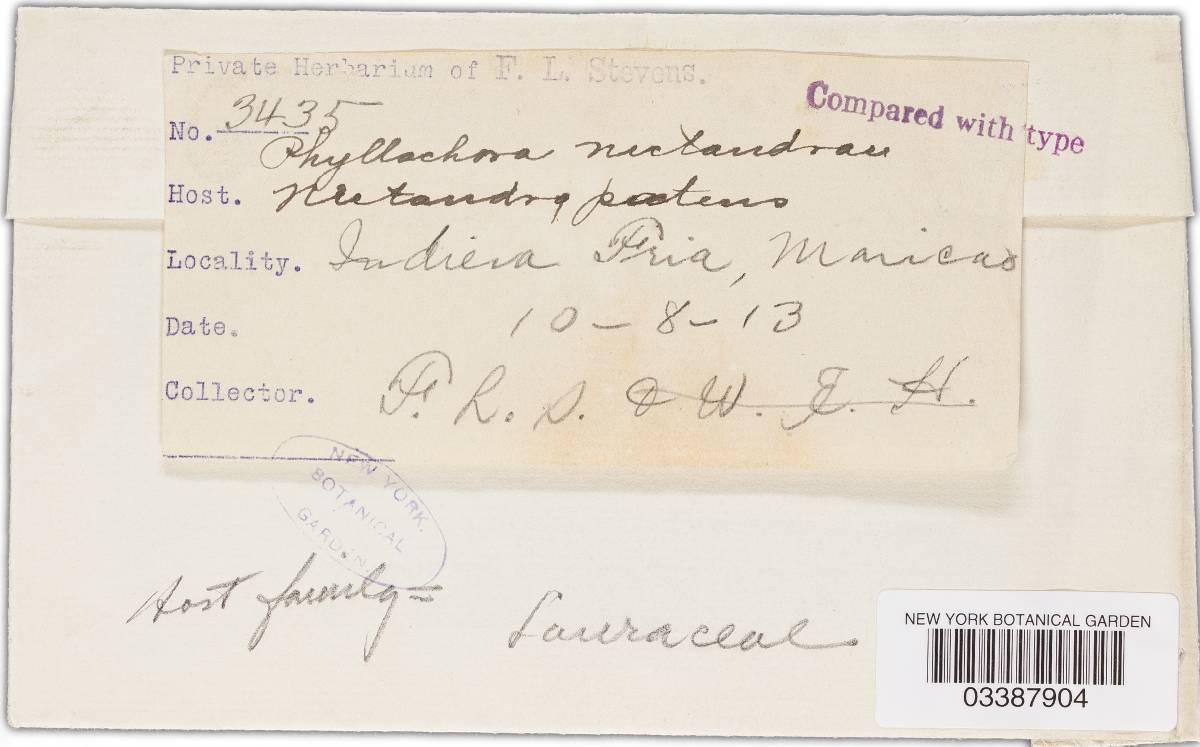 Private Herbarium of F. L. Stevens.
Compared with type
No. 3435
Phyllachora nectandrae
Host. Nectandra patens
Locality. Indiera Fria, Maricao
Date. 10-8-13
Collector. F. L. S. & W. E. H.
NEW YORK.
BOTANICAL
GARDEN.
Host family =
Lauraceae
NEW YORK BOTANICAL GARDEN
03387904